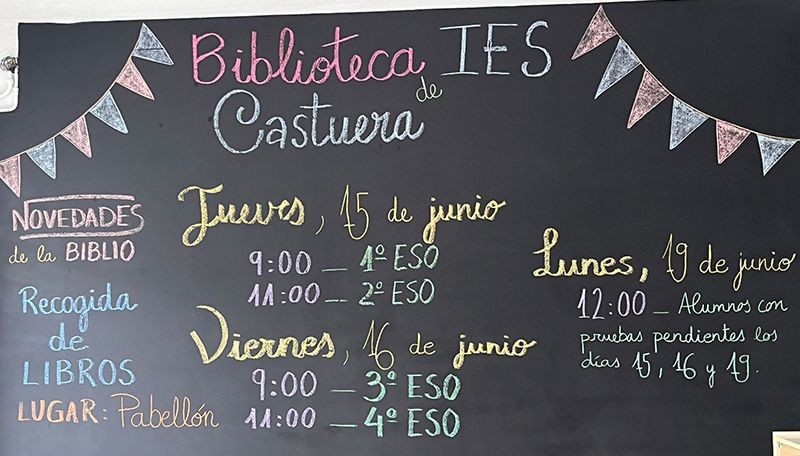 Biblioteca IES
de
Castuera
NOVEDADES
de la BIBLIO
Recogida
de
LIBROS
LUGAR: Pabellón
Jueves, 15 de junio
9:00 _ 1º ESO
11:00 _ 2º ESO
Viernes, 16 de junio
9:00 _ 3º ESO
11:00 _ 4º ESO
Lunes, 19 de junio
12:00 _ Alumnos con
pruebas pendientes los
días 15, 16 y 19.